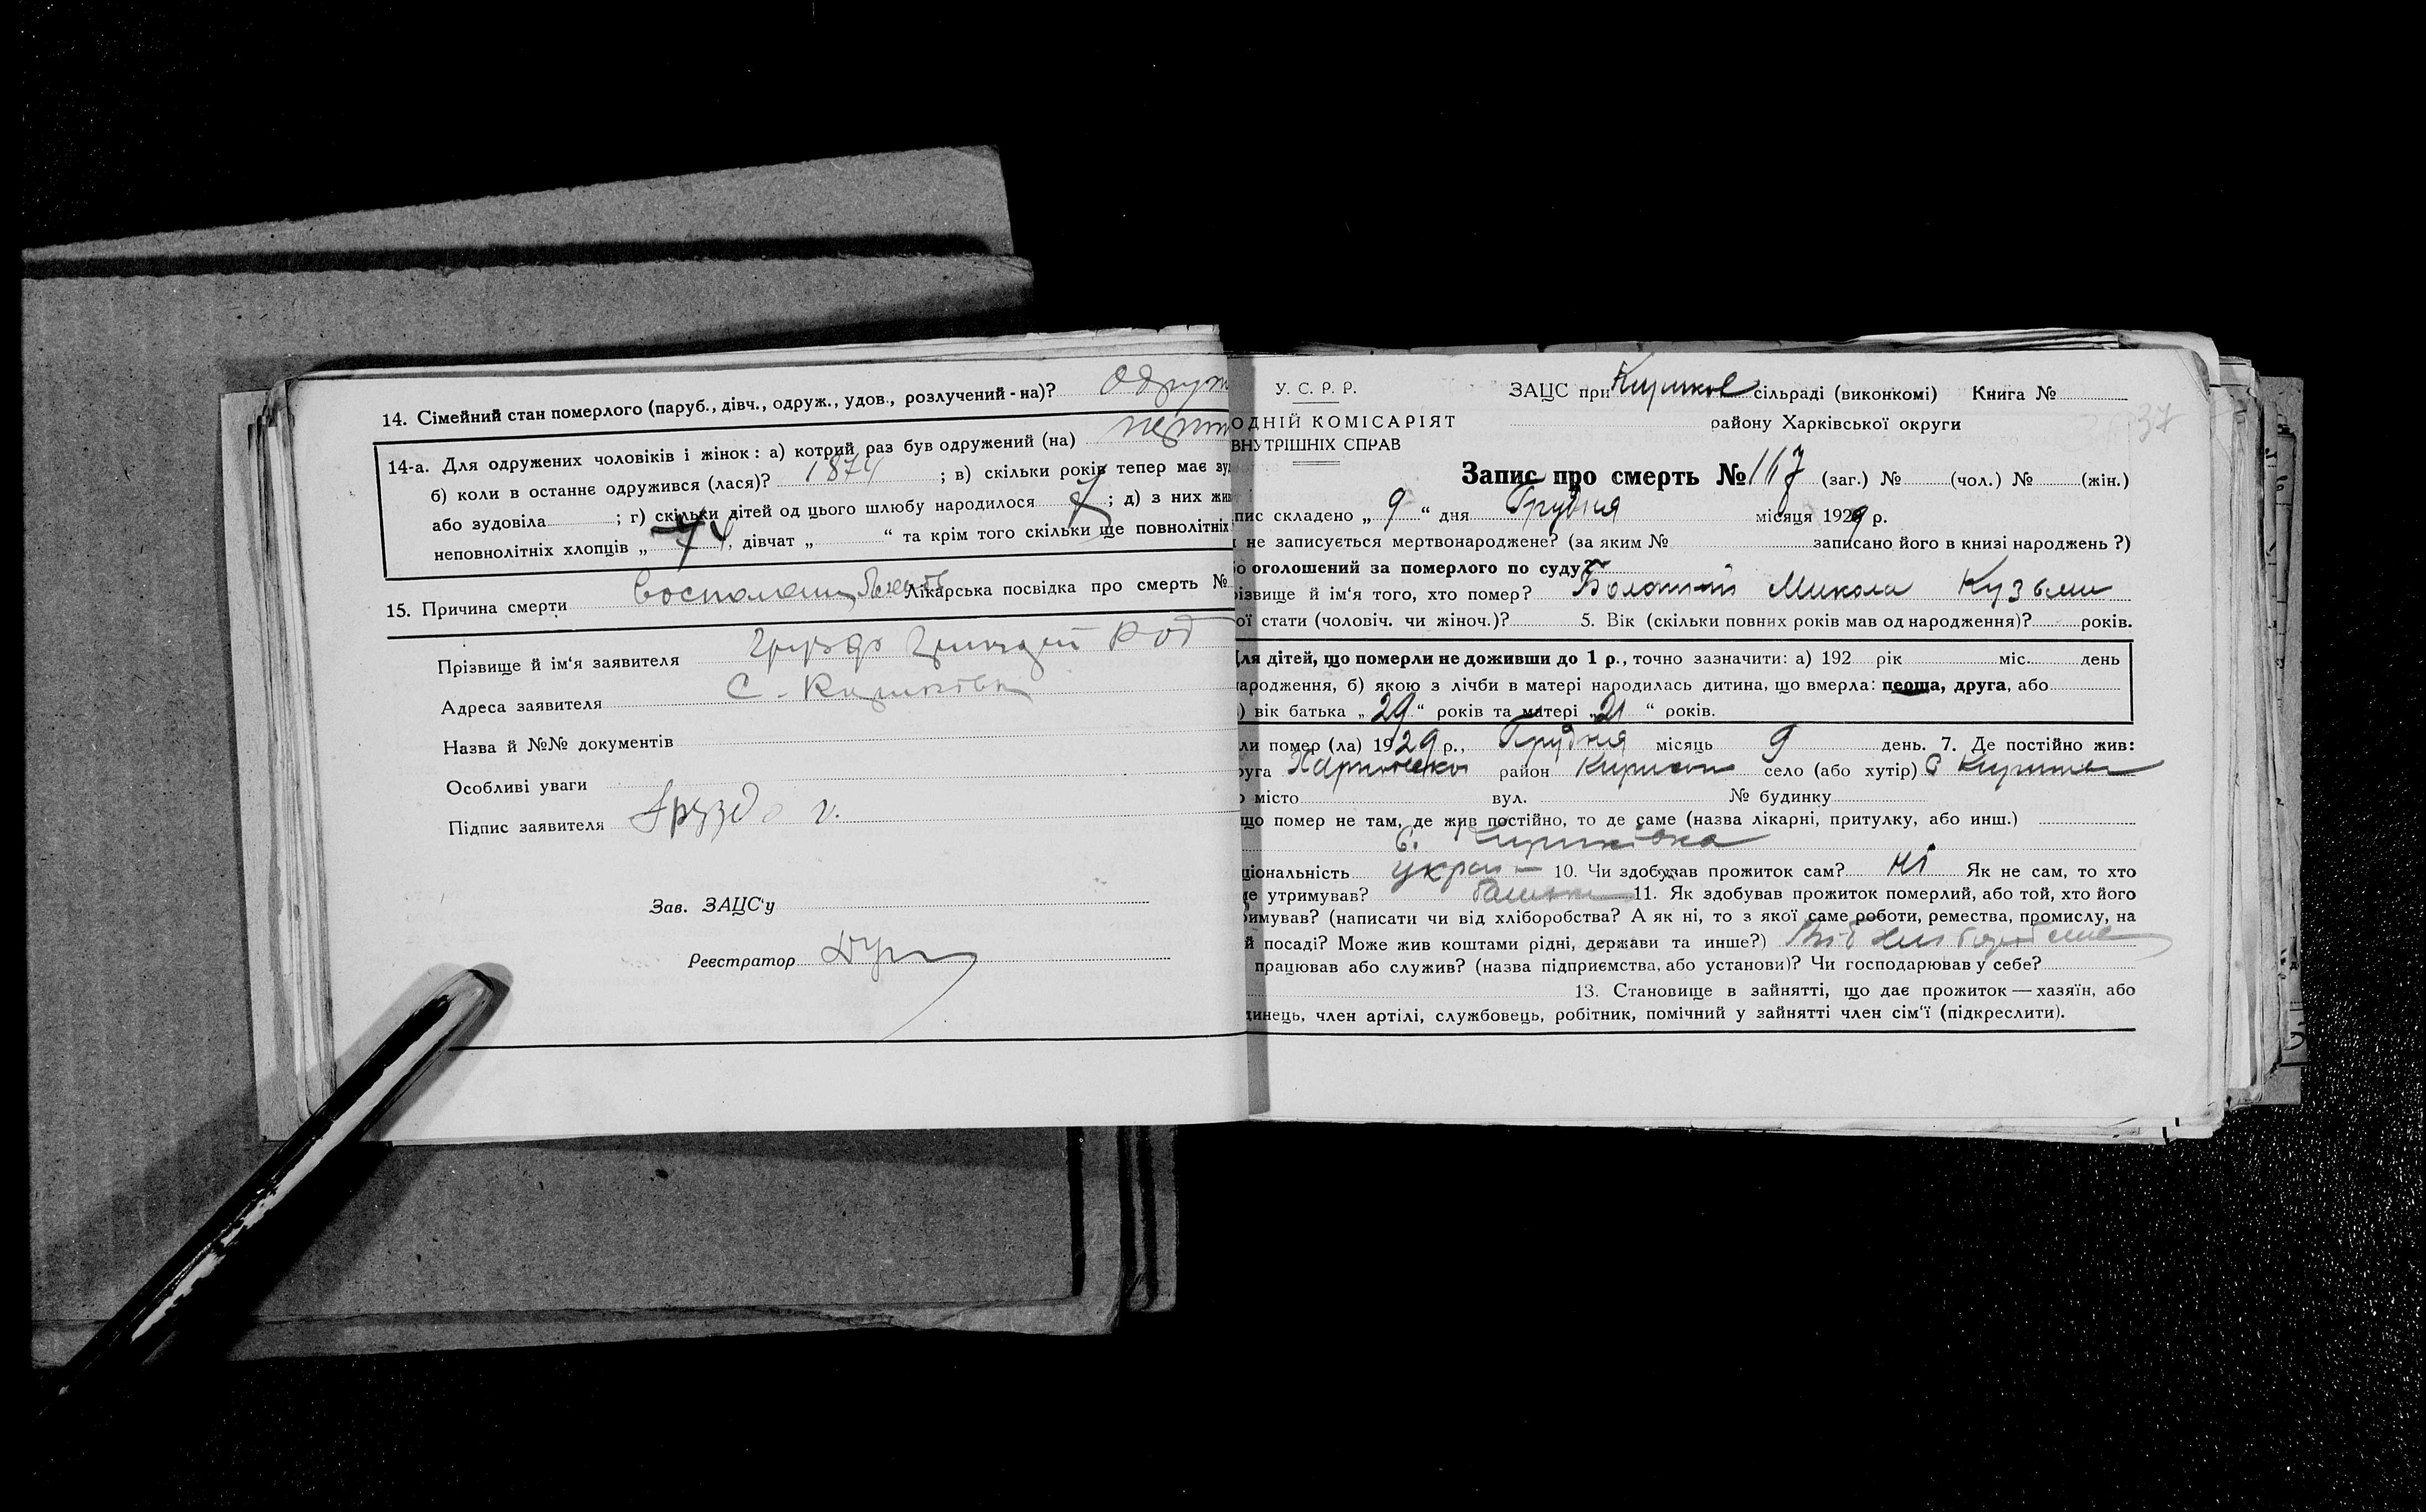 14. Сімейний стан померлого (паруб., дівч., одруж., удов., розлучений-на)? одруж
14-а. Для одружених чоловіків і жінок: а) котрий раз був одружений (на)
б) коли в останнє одружився (лася)? 1874 ; в) скільки років тепер має
або зудовіла ; г) скільки дітей од цього шлюбу народилося ; д) з них жи
неповнолітніх хлопців „ “, дівчат „ “ та крім того скільки ще повнолітніх
15. Причина смерти Лікарська посвідка про смерть №
Прізвище й ім‘я заявителя
Адреса заявителя с-Кириківка
Назва й №№ документів
Особливі уваги
Підпис заявителя Груздо г.
Зав. ЗАЦС‘у
Реєстратор
У. С. Р. Р.
ОДНІЙ КОМІСАРІЯТ
ВНУТРІШНІХ СПРАВ
ЗАЦС при Кириков сільраді (виконкомі) Книга №
району Харківської округи
37
Запис про смерть № 167 (заг.) № (чол.) № (жін.)
пис складено „ 9 “ дня Грудня місяця 1929 р.
не записується мертвонароджене? (за яким № записано його в книзі народжень ?)
о оголошений за померлого по суду?
ізвище й ім‘я того, хто помер? Микола Кузьми
ої стати (чоловіч. чи жіноч.)? 5. Вік (скільки повних років мав од народження)? років.
ля дітей, що померли не доживши до 1 р., точно зазначити: а) 192 рік міс. день
ародження, б) якою з лічби в матері народилась дитина, що вмерла: перша, друга, або
) вік батька „ 29 “ років та матері „ 21 “ років.
ли помер (ла) 1929 р., Грудня місяць 9 день. 7. Де постійно жив:
руга Харківсько район Кириков село (або хутір) С
місто вул. № будинку
що помер не там, де жив постійно, то де саме (назва лікарні, притулку, або инш.)
С. Кириківка
ціональність украї 10. Чи здобував прожиток сам? ні Як не сам, то хто
е утримував? батько 11. Як здобував прожиток померлий, або той, хто його
римував? (написати чи від хліборобства? А як ні, то з якої саме роботи, ремества, промислу, на
й посаді? Може жив коштами рідні, держави та инше?) Від хліборобства
працював або служив? (назва підприємства, або установи)? Чи господарював у себе?
13. Становище в зайнятті, що дає прожиток — хазяїн, або
динець, член артілі, службовець, робітник, помічний у зайнятті член сім‘ї (підкреслити).